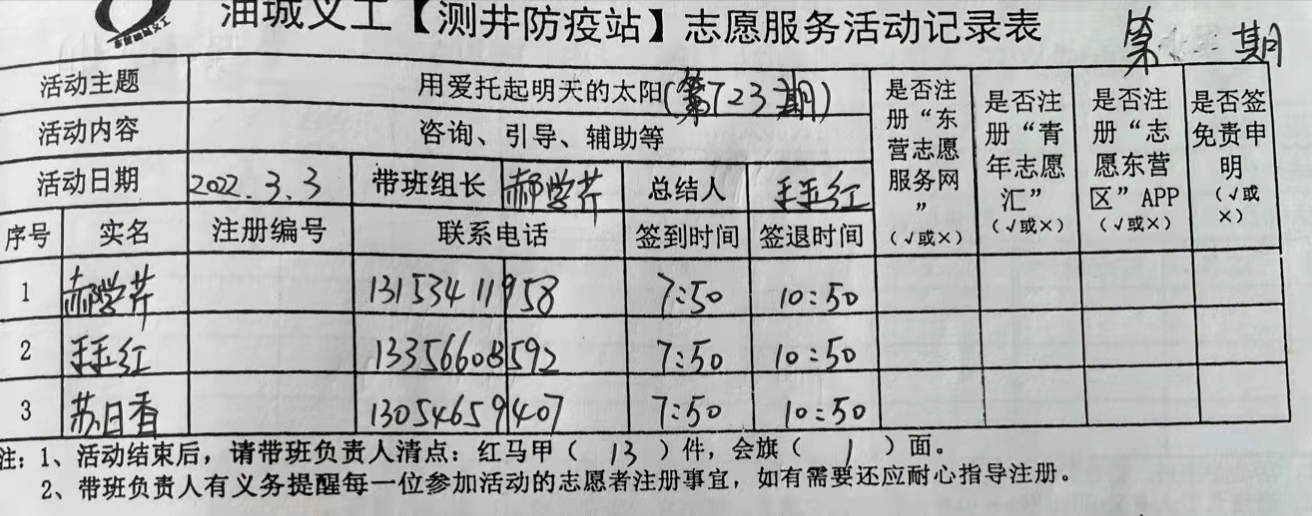 油城义工【测井防疫站】志愿服务活动记录表
第 期
活动主题 用爱托起明天的太阳(第723期) 是否注册“东营志愿服务网”(√或×) 是否注册“青年志愿汇”(√或×) 是否注册“志愿东营区”APP(√或×) 是否签免责申明(√或×)
活动内容 咨询、引导、辅助等
活动日期 2022.3.3 带班组长 郝学芹 总结人 红
序号 实名 注册编号 联系电话 签到时间 签退时间
1 郝学芹 13153411958 7:50 10:50
2 红 13356608592 7:50 10:50
3 苏日香 13054659407 7:50 10:50
注:1、活动结束后,请带班负责人清点:红马甲( 13 )件,会旗( 1 )面。
2、带班负责人有义务提醒每一位参加活动的志愿者注册事宜,如有需要还应耐心指导注册。